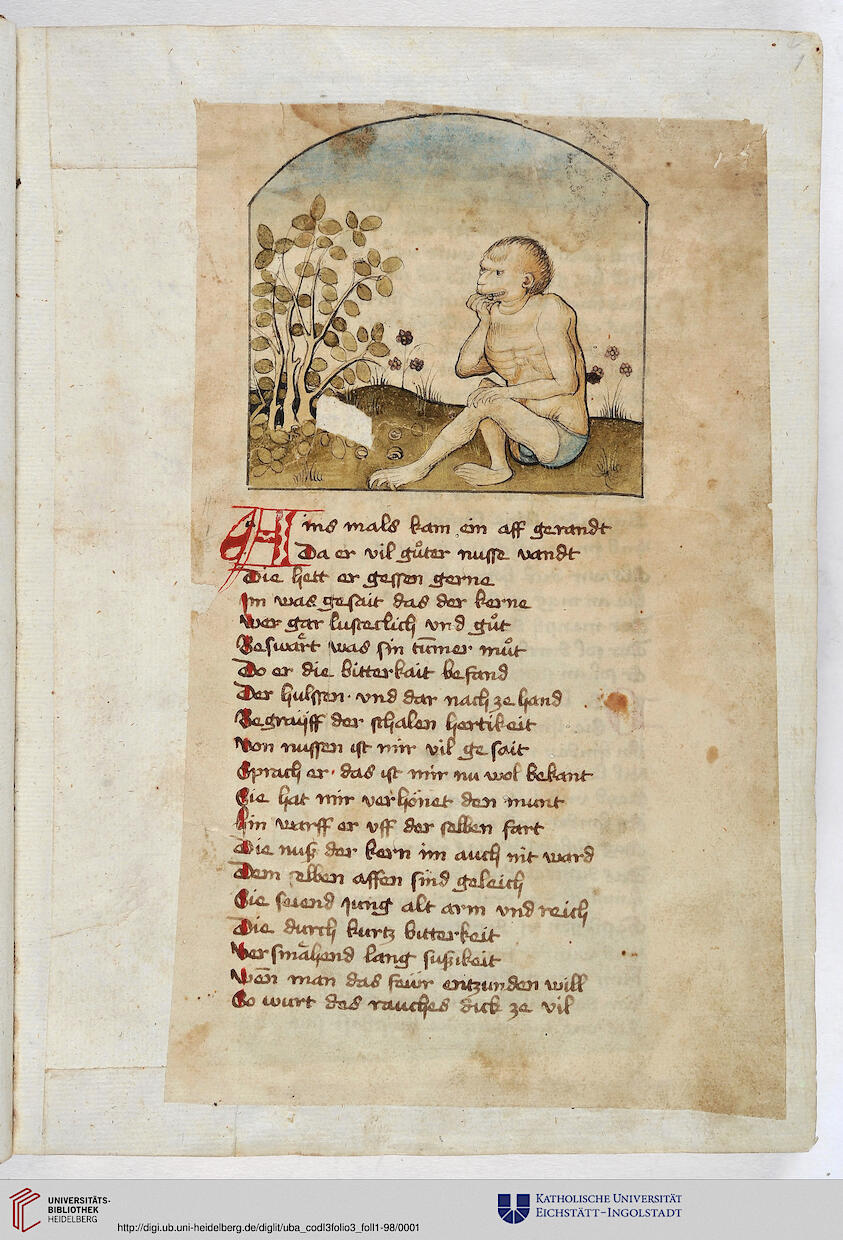 Ains mals kam ein aff gerandt
Da er vil gůter nusse vandt
Die hett er gessen gerne
Im was gesait das der kerne
Wer gar lusteclich vnd gůt
Beswaͤrt was sin tum̄er můt
Do er die bitterkait befand
Der hulssen · vnd dar nach ze hand
Begraijff der schalen hertikeit
Von nussen ist mir vil ge sait
Sprach er · das ist mir nu wol bekant
Sie hat mir verhoͤnet den munt
Hin warff er vff der selben fart
Die nuß der kern im auch nit ward
Dem selben affen sind geleich
Sie seiend jung alt arm vnd reich
Die durch kurtz bitterkeit
Versmaͤhend lang sussikeit
Wen̄ man das fewr entzunden will
So wurt des rauches dick ze vil
UNIVERSITÄTS-
BIBLIOTHEK
HEIDELBERG
http://digi.ub.uni-heidelberg.de/diglit/uba_codI3folio3_foll1-98/0001
KATHOLISCHE UNIVERSITÄT
EICHSTÄTT-INGOLSTADT